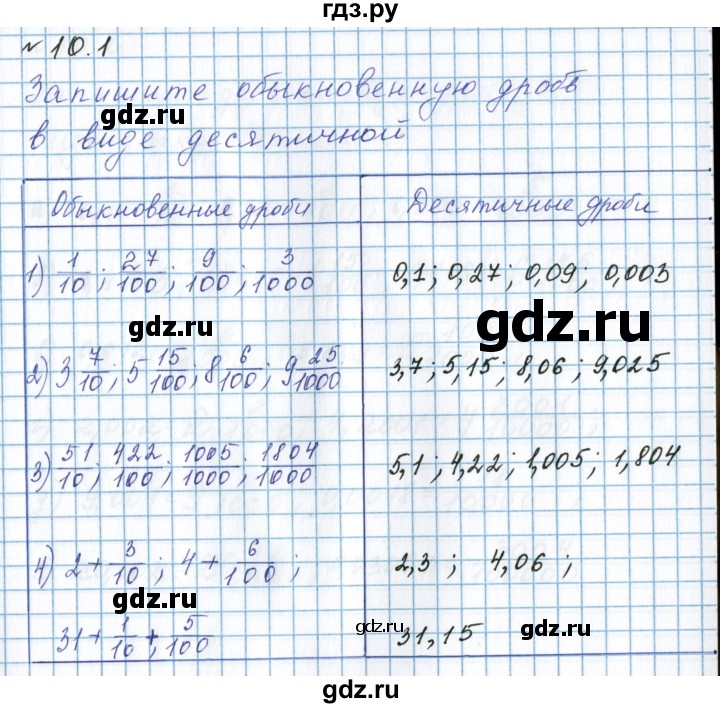 гдз.ру
№ 10.1
Запишите обыкновенную дробь
gdz.ru
в виде десятичной
Обыкновенные дроби | Десятичные дроби
1) 1/10; 27/100; 9/100; 3/1000 | 0,1; 0,27; 0,09; 0,003
gdz.ru gdz.ru
2) 3 7/10; 5 15/100; 8 6/100; 9 25/1000 | 3,7; 5,15; 8,06; 9,025
3) 51/10; 422/100; 1005/1000; 1804/1000 | 5,1; 4,22; 1,005; 1,804
4) 2+3/10; 4+6/100; | 2,3; 4,06;
gdz.ru
31+1/10+;5/100 | 31,15
gdz.ru gdz.ru
gdz.ru